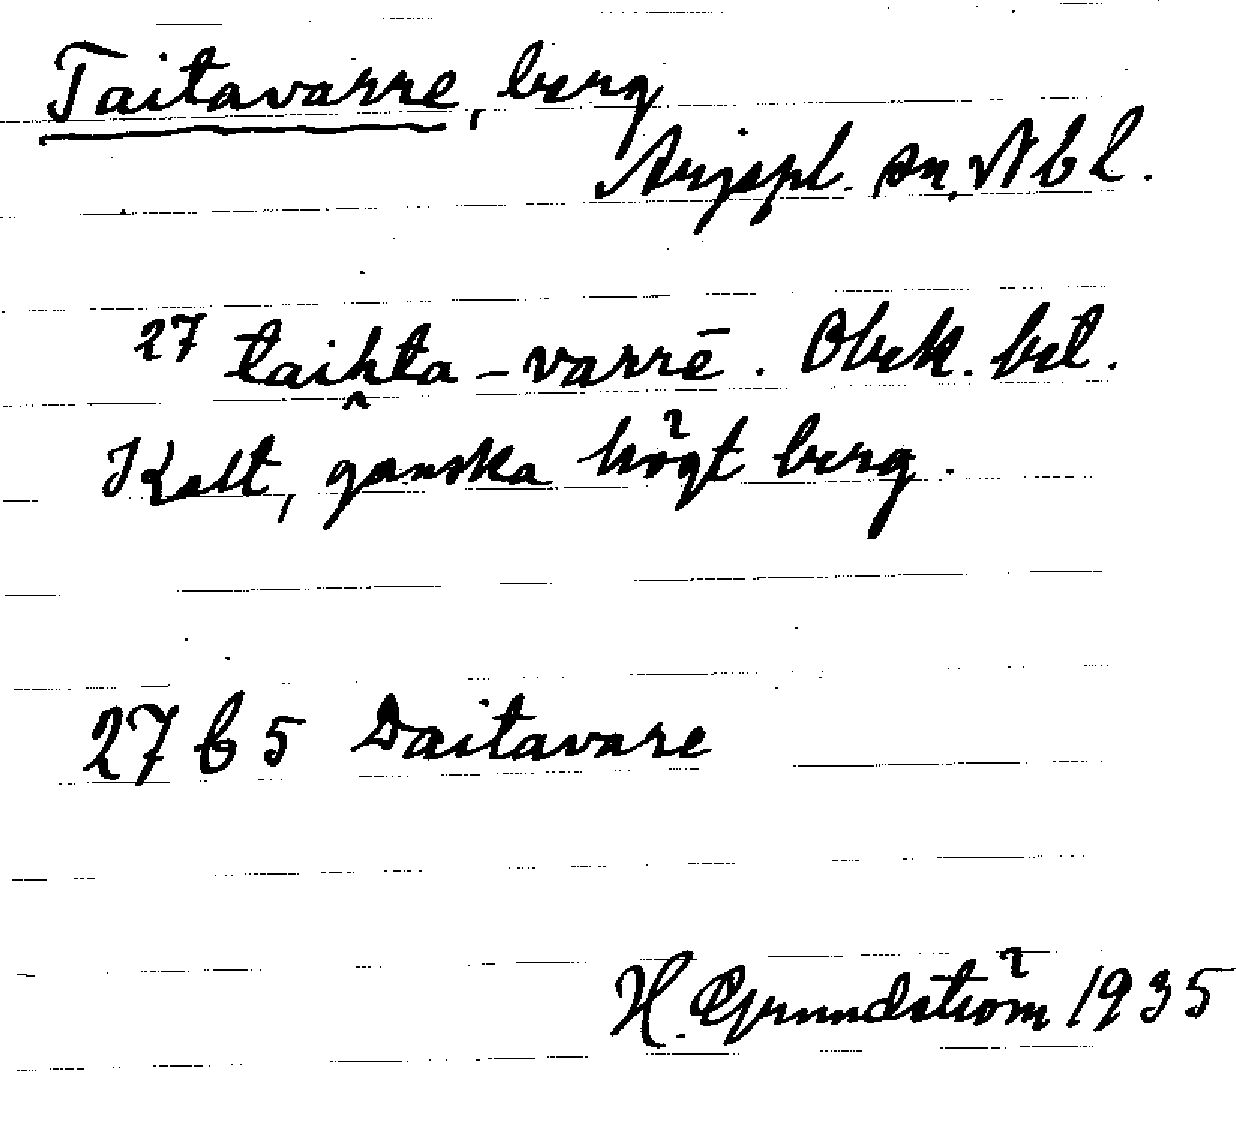 Taitavarre, berg
Arjepl. sn, Nbl.
27 taihta-varrē. Obek. bet.
Kalt, ganska högt berg.
27 C 5 Daitavare
H. Grundström 1935